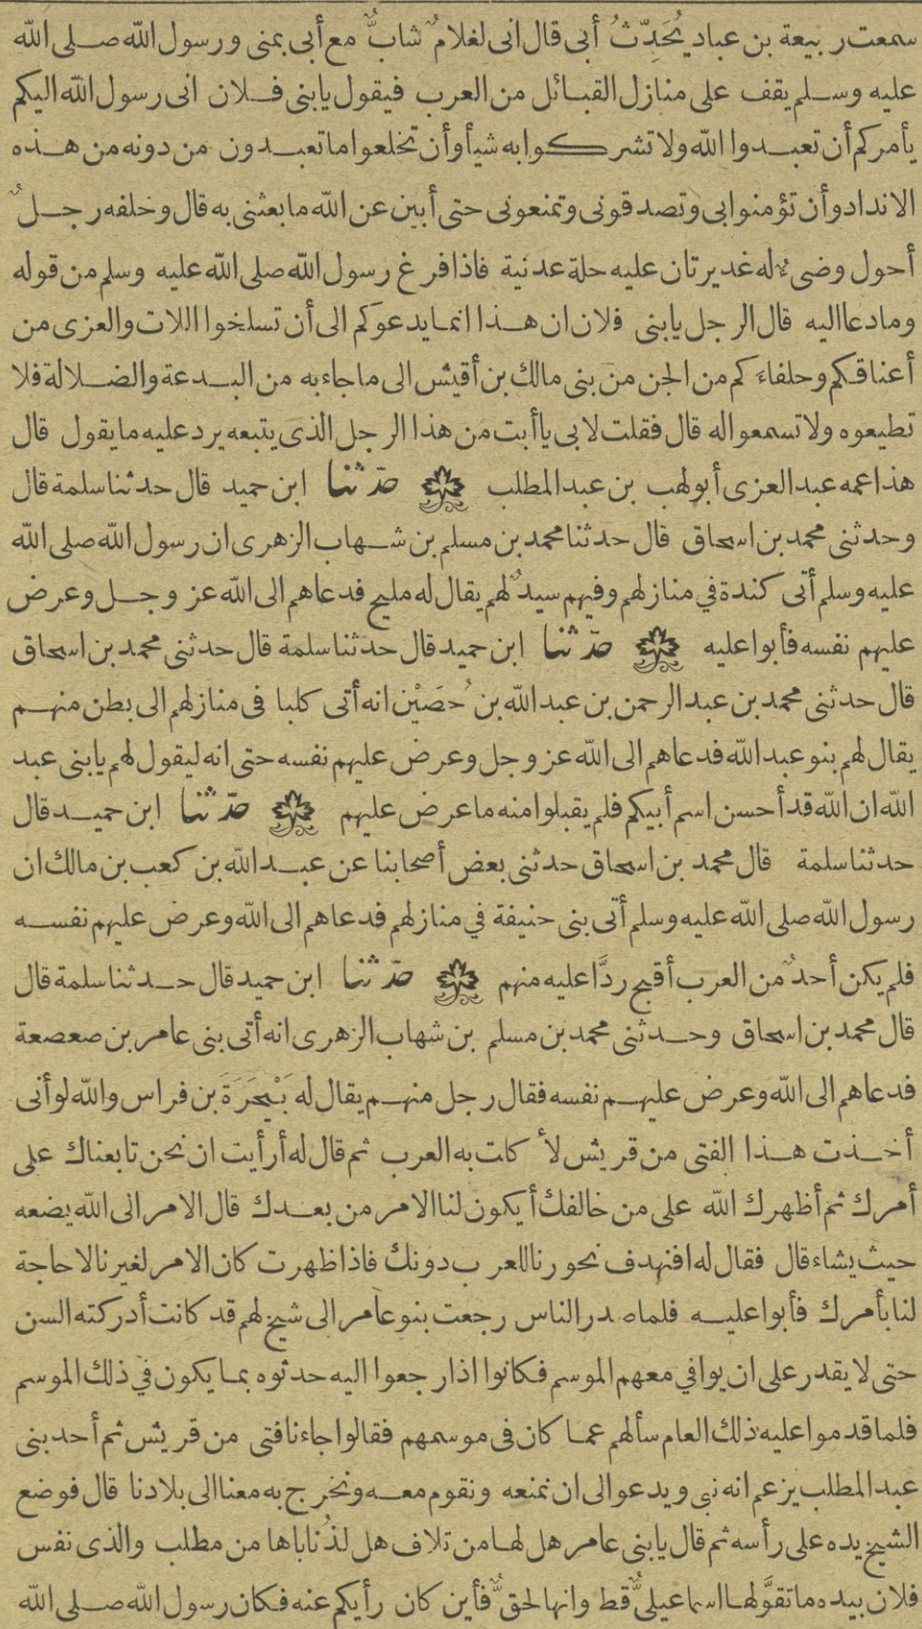 سمعت ربيعة بن عباد يُحَدِّثُ أبى قال انى لغلامٌ شابٌّ مع أبى بمنى ورسول الله صلى الله
عليه وسلم يقف على منازل القبائل من العرب فيقول يابنى فلان انى رسول الله اليكم
يأمركم أن تعبدوا الله ولا تشركوا به شيأ وأن تخلعوا ما تعبدون من دونه من هذه
الانداد وأن تؤمنوا بى وتصدقونى وتمنعونى حتى أبين عن الله ما بعثنى به قال وخلفه رجلٌ
أحول وضىءٌ له غديرتان عليه حلة عدنية فاذا فرغ رسول الله صلى الله عليه وسلم من قوله
وما دعا اليه قال الرجل يابنى فلان ان هذا انما يدعوكم الى أن تسلخوا اللات والعزى من
أعناقكم وحلفاءَكم من الجن من بنى مالك بن أقيش الى ما جاء به من البدعة والضلالة فلا
تطيعوه ولا تسمعوا له قال فقلت لابى ياأبت من هذا الرجل الذى يتبعه يرد عليه ما يقول قال
هذا عمه عبد العزى أبو لهب بن عبد المطلب حدّثنا ابن حميد قال حدثنا سلمة قال
وحدثنى محمد بن اسحاق قال حدثنا محمد بن مسلم بن شهاب الزهرى ان رسول الله صلى الله
عليه وسلم أتى كندة في منازلهم وفيهم سيدٌ لهم يقال له مليح فدعاهم الى الله عز وجل وعرض
عليهم نفسه فأبوا عليه حدّثنا ابن حميد قال حدثنا سلمة قال حدثنى محمد بن اسحاق
قال حدثنى محمد بن عبد الرحمن بن عبد الله بن حُصَيْن انه أتى كلبا فى منازلهم الى بطن منهم
يقال لهم بنو عبد الله فدعاهم الى الله عز وجل وعرض عليهم نفسه حتى انه ليقول لهم يابنى عبد
الله ان الله قد أحسن اسم أبيكم فلم يقبلوا منه ما عرض عليهم حدّثنا ابن حميد قال
حدثنا سلمة قال محمد بن اسحاق حدثنى بعض أصحابنا عن عبد الله بن كعب بن مالك ان
رسول الله صلى الله عليه وسلم أتى بنى حنيفة في منازلهم فدعاهم الى الله وعرض عليهم نفسه
فلم يكن أحدٌ من العرب أقبح ردًّا عليه منهم حدّثنا ابن حميد قال حدثنا سلمة قال
قال محمد بن اسحاق وحدثنى محمد بن مسلم بن شهاب الزهرى انه أتى بنى عامر بن صعصعة
فدعاهم الى الله وعرض عليهم نفسه فقال رجل منهم يقال له بَيْحَرَة بن فراس والله لو أنى
أخذت هذا الفتى من قريش لأكلت به العرب ثم قال له أرأيت ان نحن تابعناك على
أمرك ثم أظهرك الله على من خالفك أيكون لنا الامر من بعدك قال الامر الى الله يضعه
حيث يشاء قال فقال له افنهدف نحورنا للعرب دونك فاذا ظهرت كان الامر لغيرنا لا حاجة
لنا بأمرك فأبوا عليه فلما صدر الناس رجعت بنو عامر الى شيخ لهم قد كانت أدركته السن
حتى لا يقدر على ان يوافي معهم الموسم فكانوا اذا رجعوا اليه حدثوه بما يكون في ذلك الموسم
فلما قدموا عليه ذلك العام سألهم عما كان فى موسمهم فقالوا جاءنا فتى من قريش ثم أحد بنى
عبد المطلب يزعم انه نبى ويدعو الى ان نمنعه ونقوم معه ونخرج به معنا الى بلادنا قال فوضع
الشيخ يده على رأسه ثم قال يابنى عامر هل لها من تلاف هل لذُناباها من مطلب والذى نفس
فلان بيده ما تقوَّلها اسماعيلىٌّ قط وانها لحقٌّ فأين كان رأيكم عنه فكان رسول الله صلى الله